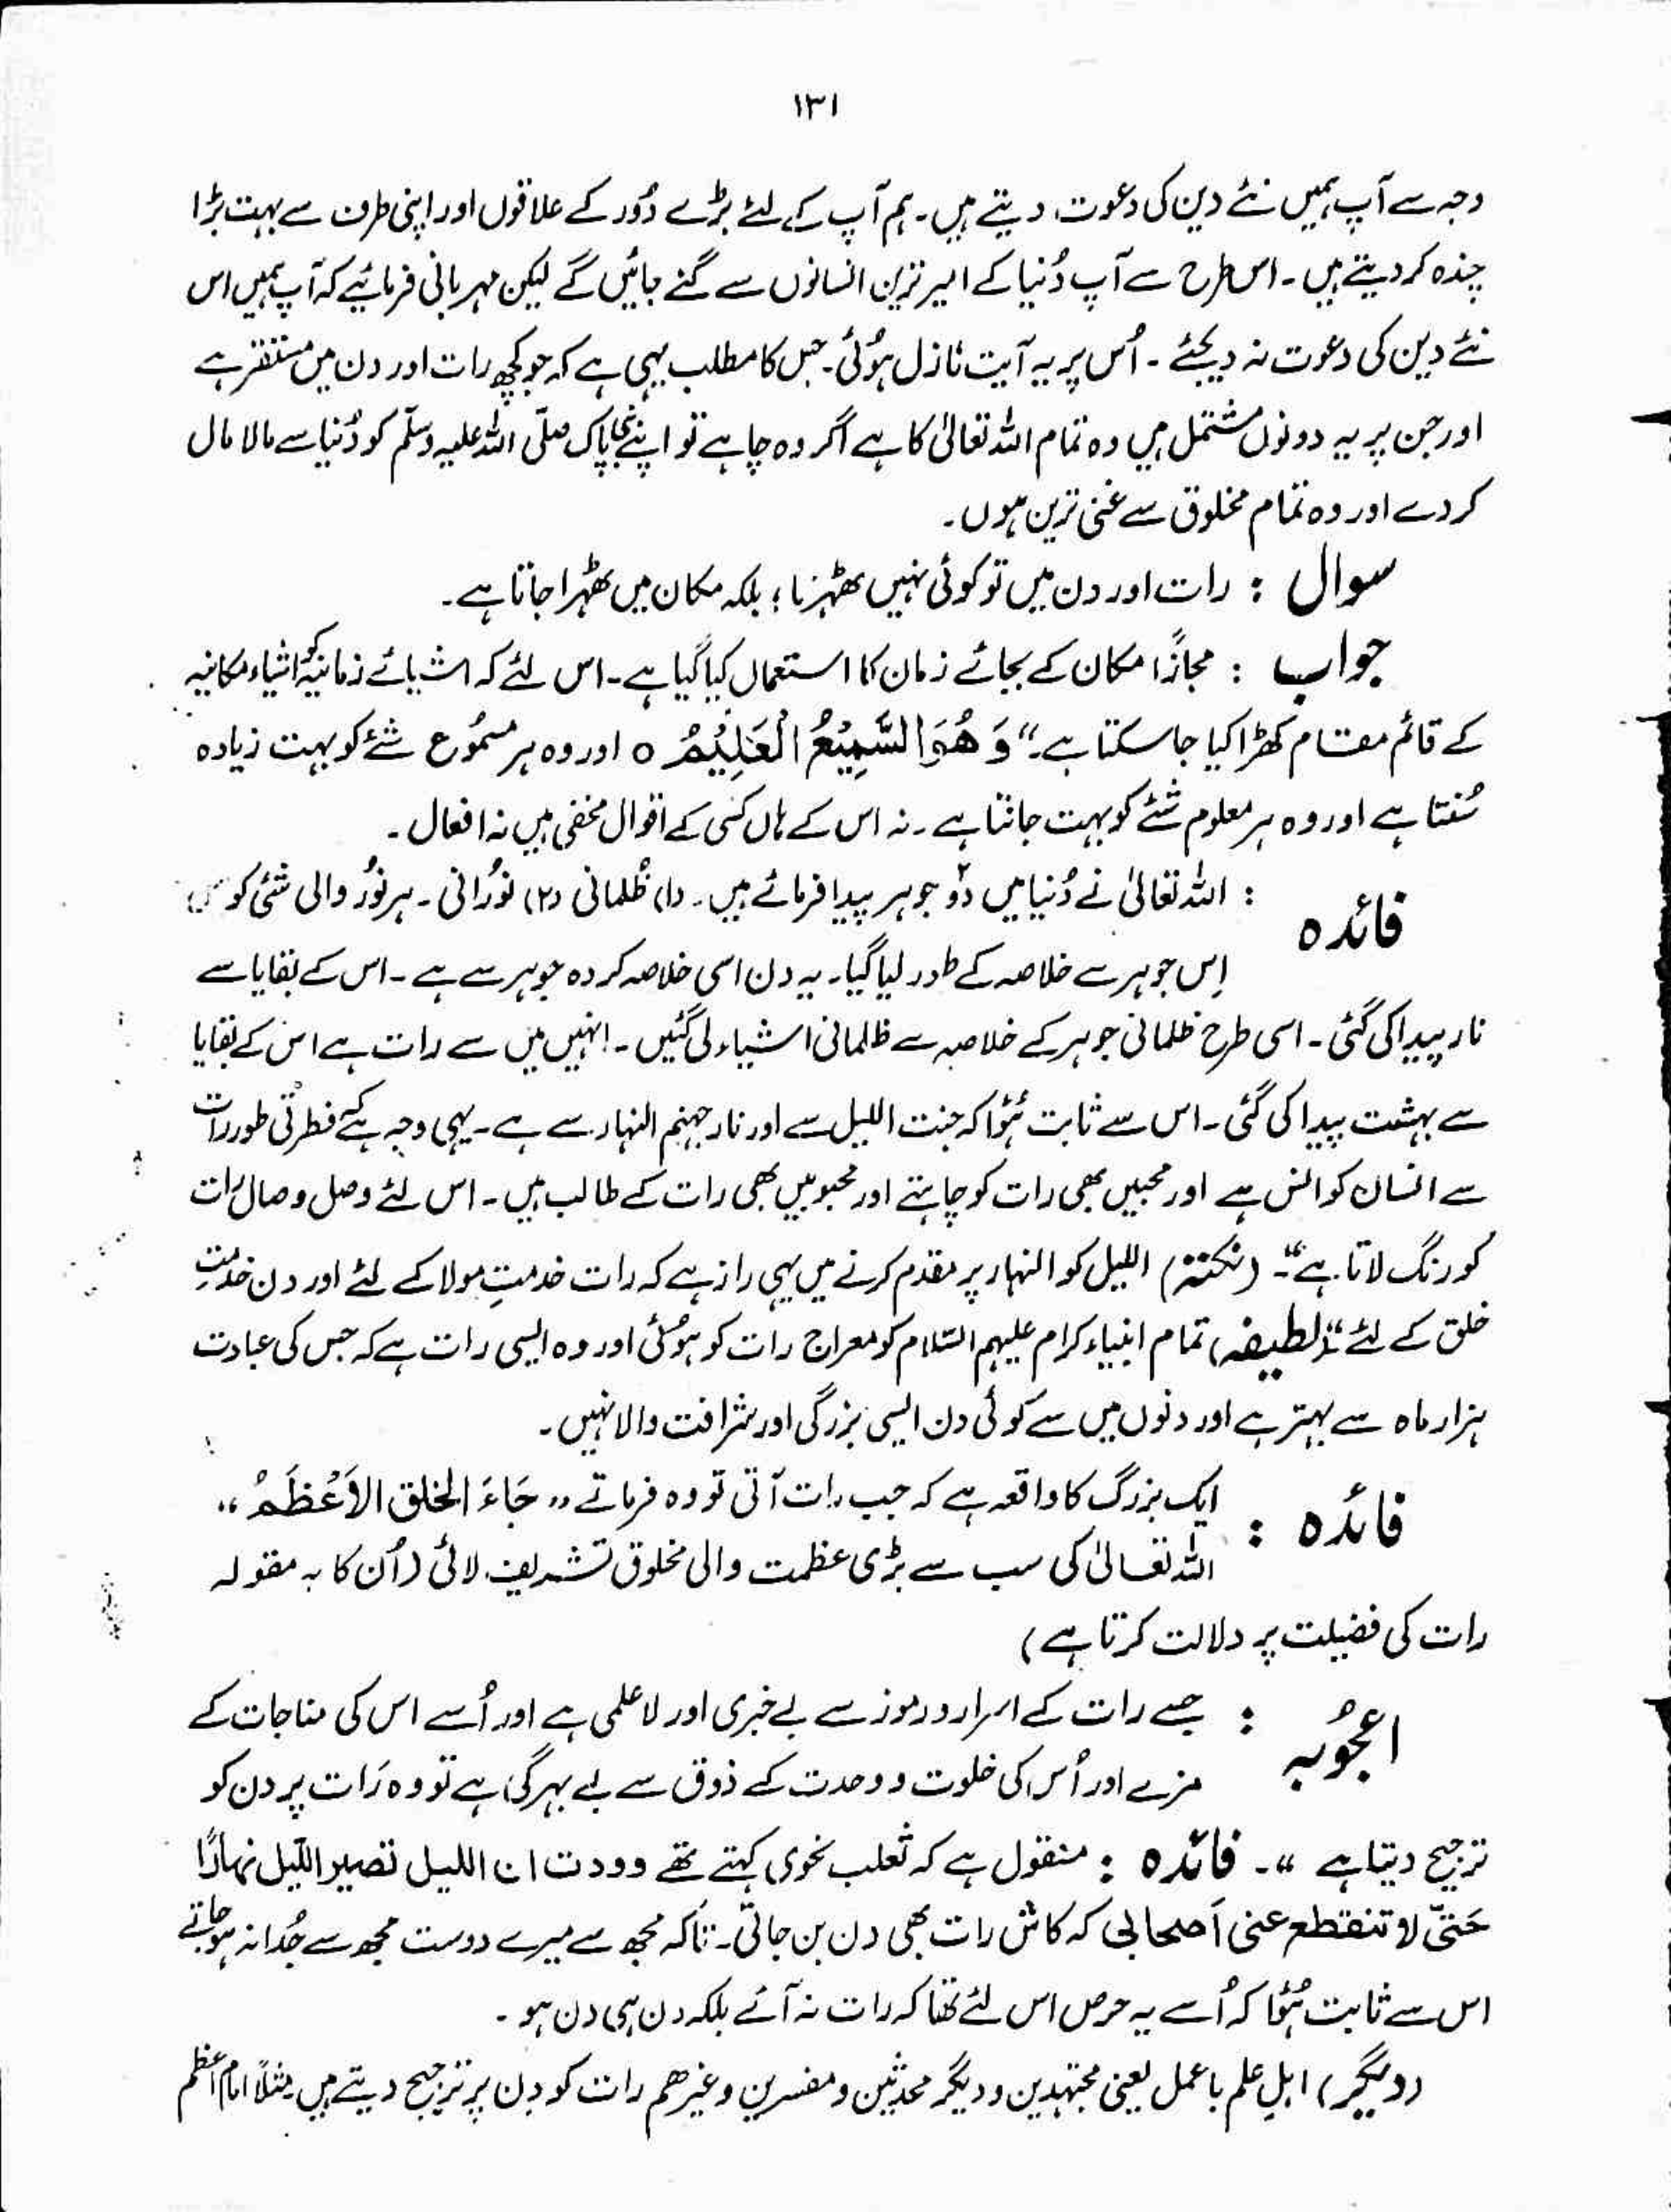 ۱۳۱
وجہ سے آپ ہمیں نئے دین کی دعوت دیتے ہیں۔ ہم آپ کے لئے بڑے دُور کے علاقوں اور اپنی طرف سے بہت بڑا
چندہ کر دیتے ہیں۔ اس طرح سے آپ دُنیا کے امیر ترین انسانوں سے گنے جائیں گے لیکن مہربانی فرمائیے کہ آپ ہمیں اس
نئے دین کی دعوت نہ دیجئے۔ اُس پر یہ آیت نازل ہُوئی۔ جس کا مطلب یہی ہے کہ جو کچھ رات اور دن میں مستقر ہے
اور جن پر یہ دونوں مشتمل ہیں وہ تمام اللہ تعالیٰ کا ہے اگر وہ چاہے تو اپنے نبی پاک صلّی اللہ علیہ وسلّم کو دُنیا سے مالا مال
کر دے اور وہ تمام مخلوق سے غنی ترین ہوں۔
سوال : رات اور دن میں تو کوئی نہیں ٹھہرتا ؛ بلکہ مکان میں ٹھہرا جاتا ہے۔
جواب : مجازًا مکان کے بجائے زمان کا استعمال کیا گیا ہے۔ اس لئے کہ اشیائے زمانیہ کو اشیاء مکانیہ
کے قائم مقام کھڑا کیا جا سکتا ہے۔“ وَ هُوَ السَّمِيْعُ الْعَلِيْمُ ہ اور وہ ہر مسمُوع شئے کو بہت زیادہ
سُنتا ہے اور وہ ہر معلوم شئے کو بہت جانتا ہے۔ نہ اس کے ہاں کسی کے اقوال مخفی ہیں نہ افعال۔
فائدہ : اللہ تعالیٰ نے دُنیا میں دو جوہر پیدا فرمائے ہیں۔ (۱) ظُلمانی (۲) نُورانی۔ ہر نُور والی شئی کو
اِس جوہر سے خلاصہ کے طور لیا گیا۔ یہ دن اسی خلاصہ کردہ جوہر سے ہے۔ اس کے بقایا سے
نار پیدا کی گئی۔ اسی طرح ظلمانی جوہر کے خلاصہ سے ظلمانی اشیاء لی گئیں۔ انہیں میں سے رات ہے اس کے بقایا
سے بہشت پیدا کی گئی۔ اس سے ثابت ہُوا کہ جنت اللیل سے اور نار جہنم النہار سے ہے۔ یہی وجہ ہے کہ فطرتی طور رات
سے انسان کو انس ہے اور محبیں بھی رات کو چاہتے اور محبوبیں بھی رات کے طالب ہیں۔ اس لئے وصل و صال رات
کو رنگ لاتا ہے“۔ (نکتہ) اللیل کو النہار پر مقدم کرنے میں یہی راز ہے کہ رات خدمتِ مولا کے لئے اور دن خدمتِ
خلق کے لئے“۔ (لطیفہ) تمام انبیاء کرام علیہم السّلام کو معراج رات کو ہوئی اور وہ ایسی رات ہے کہ جس کی عبادت
ہزار ماہ سے بہتر ہے اور دنوں میں سے کوئی دن ایسی بزرگی اور شرافت والا نہیں۔
فائدہ : ایک بزرگ کا واقعہ ہے کہ جب رات آتی تو وہ فرماتے ” جَاءَ الخلق الاَعْظَمُ “
اللہ تعالیٰ کی سب سے بڑی عظمت والی مخلوق تشریف لائی (اُن کا یہ مقولہ
رات کی فضیلت پر دلالت کرتا ہے)
اعجُوبہ : جسے رات کے اسرار و رموز سے بے خبری اور لاعلمی ہے اور اُسے اس کی مناجات کے
مزے اور اُس کی خلوت و وحدت کے ذوق سے بے بہرگی ہے تو وہ رَات پر دن کو
ترجیح دیتا ہے “۔ فائدہ : منقول ہے کہ ثعلب نحوی کہتے تھے وودت ان اللیل تصیر اللّیل نہارًا
حَتّیٰ لا تنقطع عنی اَصحابی کہ کاش رات بھی دن بن جاتی۔ تاکہ مجھ سے میرے دوست مجھ سے جُدا نہ ہو جاتے
اس سے ثابت ہُوا کہ اُسے یہ حرص اس لئے تھا کہ رات نہ آئے بلکہ دن ہی دن ہو۔
(دیگر) اہلِ علم با عمل یعنی مجتہدین و دیگر محدثین و مفسرین و غیرھم رات کو دن پر ترجیح دیتے ہیں مثلاً امام اعظم